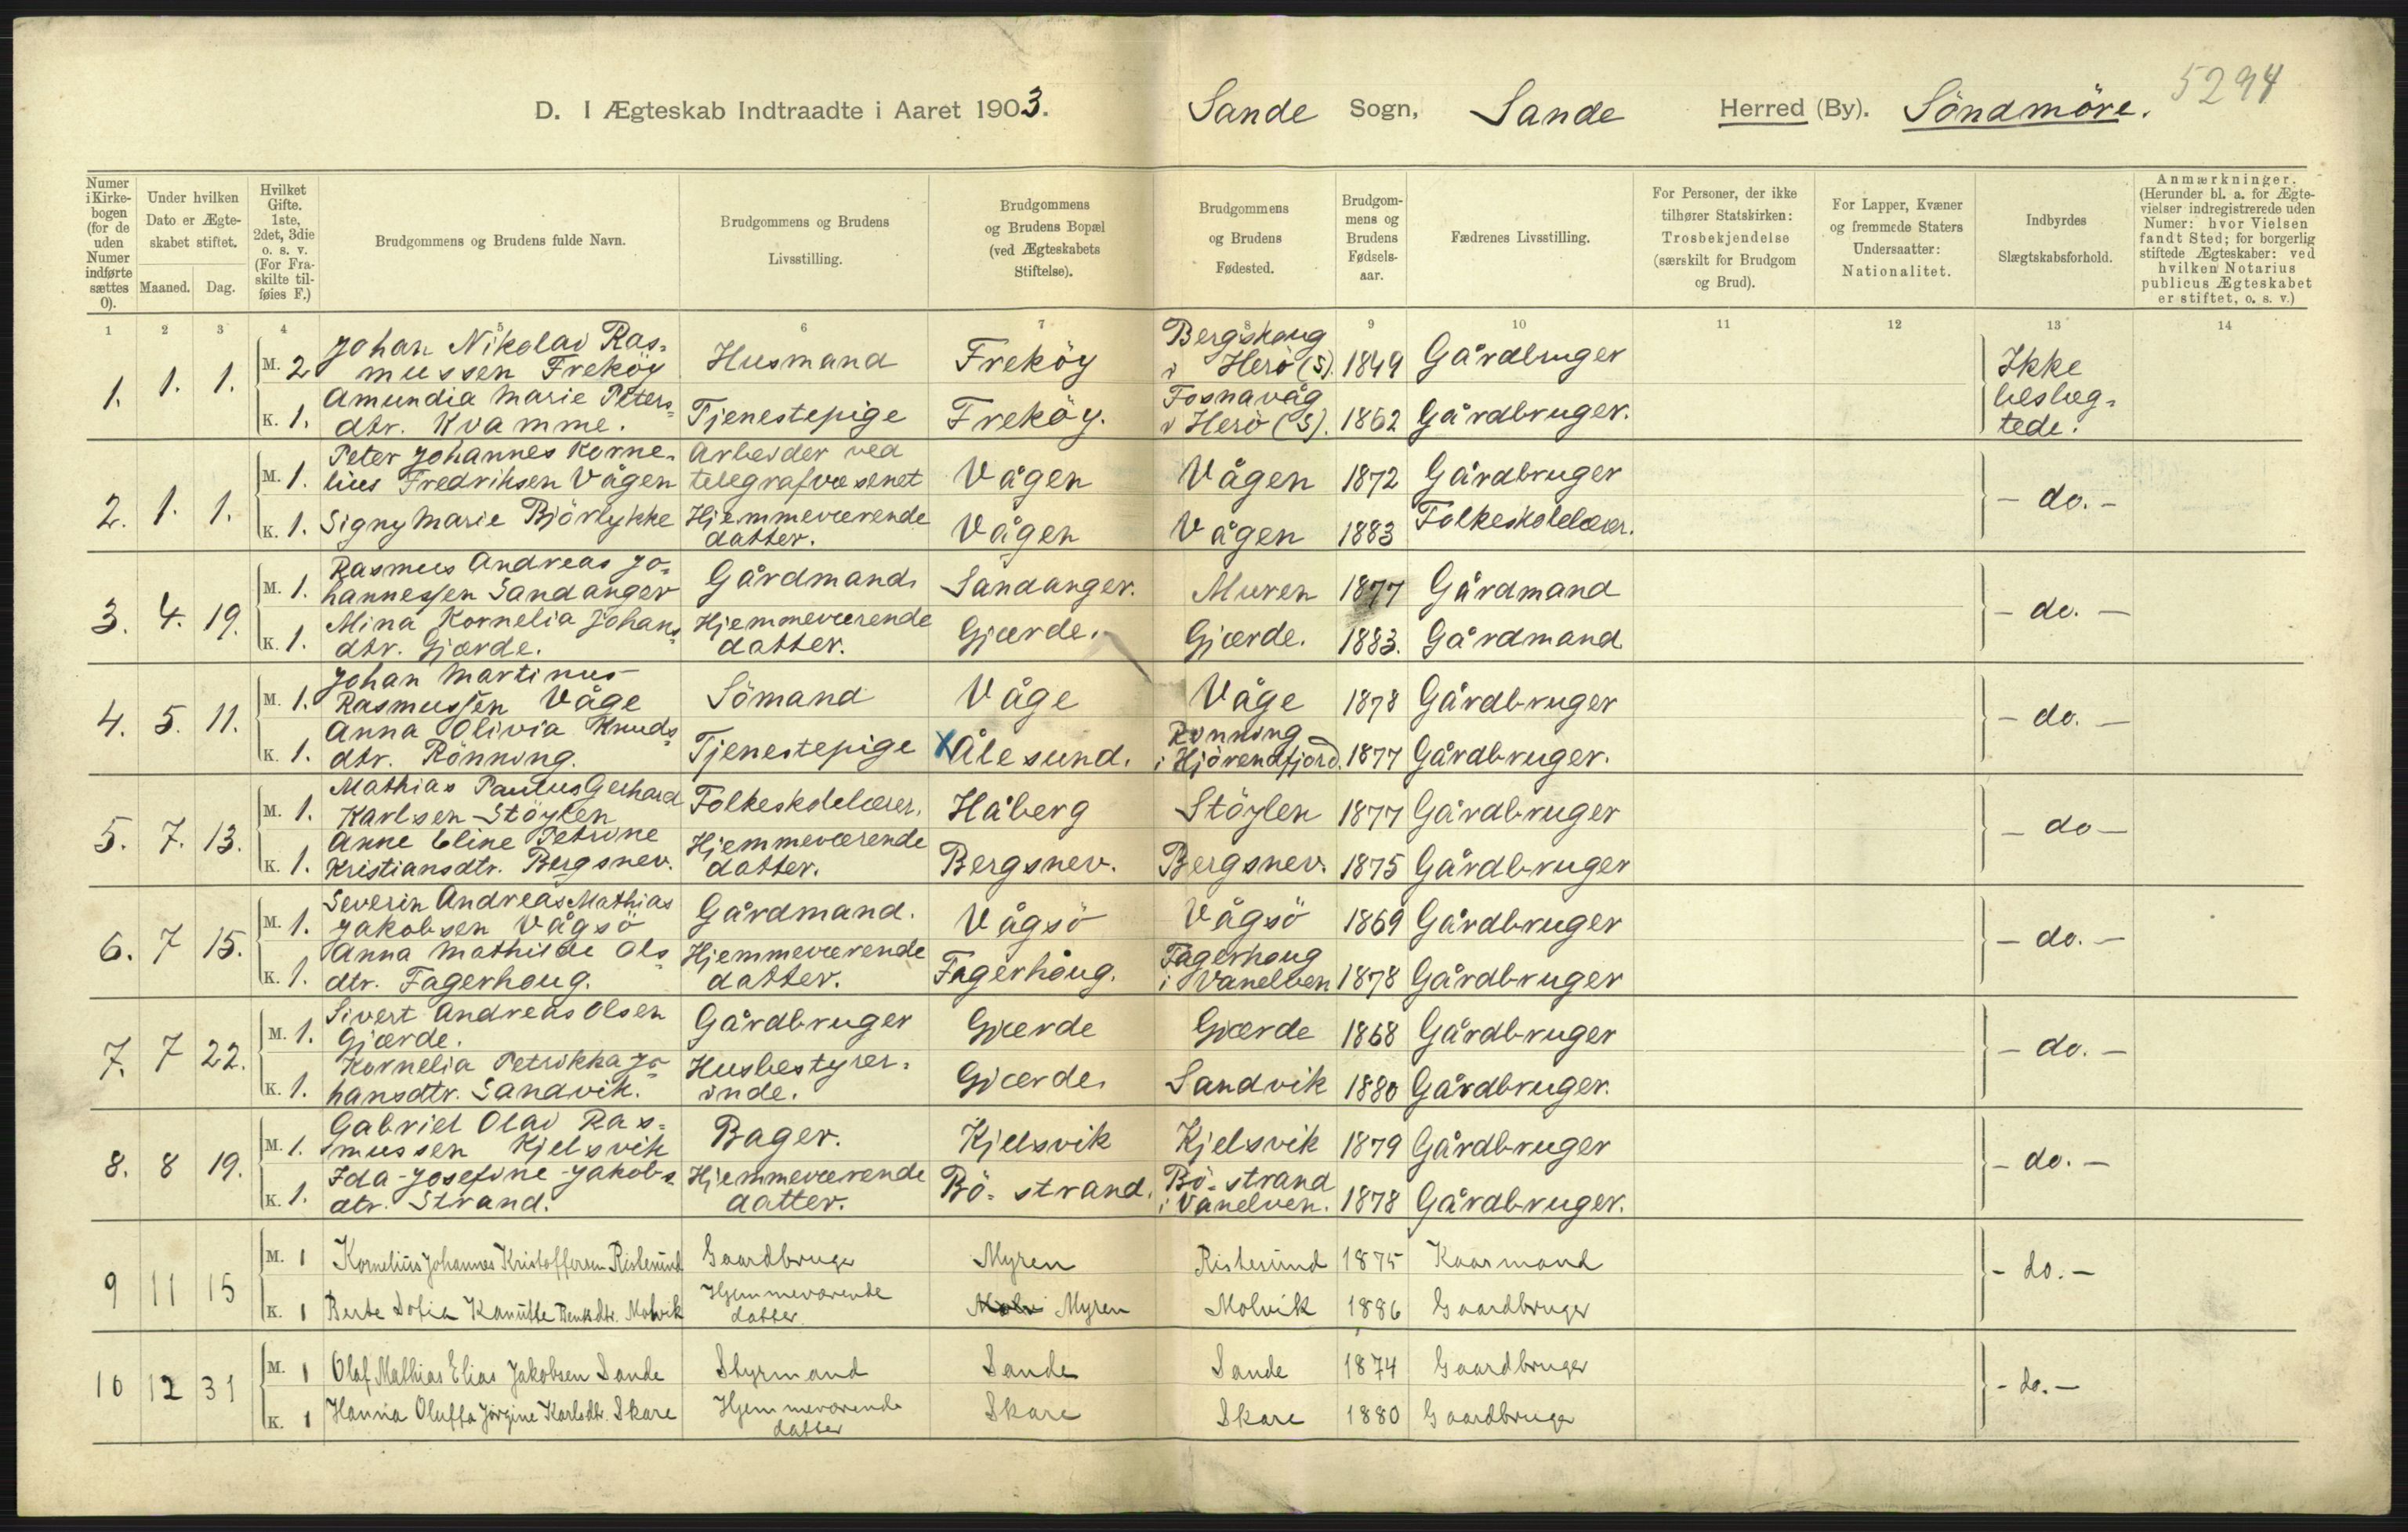 5294
D. I Ægteskab Indtraadte i Aaret 1903. Sande Sogn, Sande Herred (By). Söndmöre.
Numer i Kirkebogen (for de uden Numer indførte sættes 0).
Under hvilken Dato er Ægteskabet stiftet.
Maaned. Dag.
Hvilket Gifte. 1ste, 2det, 3die o. s. v. (For Fraskilte tilføies F.)
Brudgommens og Brudens fulde Navn.
Brudgommens og Brudens Livsstilling.
Brudgommens og Brudens Bopæl (ved Ægteskabets Stiftelse).
Brudgommens og Brudens Fødested.
Brudgommens og Brudens Fødselsaar.
Fædrenes Livsstilling.
For Personer, der ikke tilhører Statskirken: Trosbekjendelse (særskilt for Brudgom og Brud).
For Lapper, Kvæner og fremmede Staters Undersaatter: Nationalitet.
Indbyrdes Slægtskabsforhold.
Anmærkninger. (Herunder bl. a. for Ægtevielser indregistrerede uden Numer: hvor Vielsen fandt Sted; for borgerlig stiftede Ægteskaber: ved hvilken Notarius publicus Ægteskabet er stiftet, o. s. v.)
1 2 3 4 5 6 7 8 9 10 11 12 13 14
1. 1. 1. M. 2 Johan Nikolai Rasmussen Freköy Husmand Freköy Bergshoug i Herö (S). 1849 Gårdbruger Ikke beslægtede.
K. 1. Amundia Marie Petersdtr. Kvamme. Tjenestepige Freköy. Fosnavåg i Herö (S). 1862 Gårdbruger.
2. 1. 1. M. 1. Peter Johannes Kornelius Fredriksen Vågen Arbeider ved telegrafvæsenet Vågen Vågen 1872 Gårdbruger - do. -
K. 1. Signy Marie Björlykke Hjemmeværende datter. Vågen Vågen 1883 Folkeskolelærer.
3. 4. 19. M. 1. Rasmus Andreas Johannessen Sandanger Gårdmand Sandanger. Muren 1877 Gårdmand - do. -
K. 1. Mina Kornelia Johansdtr. Gjærde. Hjemmeværende datter. Gjærde. Gjærde. 1883. Gårdmand
4. 5. 11. M. 1. Johan Martinus Rasmussen Våge Sömand Våge Våge 1878 Gårdbruger - do. -
K. 1. Anna Olivia Knudsdtr. Rönning. Tjenestepige x Ålesund. Rönning i Hjörendfjord. 1877 Gårdbruger.
5. 7. 13. M. 1. Mathias Paulus Gerhard Karlsen Stöylen Folkeskolelærer. Håberg Stöylen 1877 Gårdbruger - do -
K. 1. Anne Eline Petrine Kristiansdtr. Bergsnev. Hjemmeværende datter. Bergsnev. Bergsnev. 1875 Gårdbruger
6. 7 15. M. 1. Severin Andreas Mathias Jakobsen Vågsö Gårdmand. Vågsö Vågsö 1869 Gårdbruger - do. -
K. 1. Anna Mathilde Olsdtr. Fagerhoug. Hjemmeværende datter. Fagerhoug. Fagerhoug i Vanelven 1878 Gårdbruger
7. 7 22. M. 1. Sivert Andreas Olsen Gjærde. Gårdbruger Gjærde Gjærde 1868 Gårdbruger - do. -
K. 1. Kornelia Petrikka Johansdtr. Sandvik. Husbestyrerinde. Gjærde. Sandvik 1880 Gårdbruger.
8. 8 19. M. 1. Gabriel Olai Rasmussen Kjelsvik Bager. Kjelsvik Kjelsvik 1879 Gårdbruger - do. -
K. 1. Ida Josefine Jakobsdtr. Strand. Hjemmeværende datter. Bö-strand. Bö-strand i Vanelven. 1878 Gårdbruger.
9 11 15 M. 1 Kornelius Johannes Kristoffersen Ristesund Gaardbruger Myren Ristesund 1875 Kaarmand - do. -
K. 1 Berte Sofia Kanutte Benksdtr. Molvik Hjemmeværende datter Myren Molvik 1886 Gaardbruger
10 12 31 M. 1 Olaf Mathias Elias Jakobsen Sande Styrmand Sande Sande 1874 Gaardbruger - do. -
K. 1 Hanna Oluffa Jörgine Karlsdtr. Skare Hjemmeværende datter Skare Skare 1880 Gaardbruger